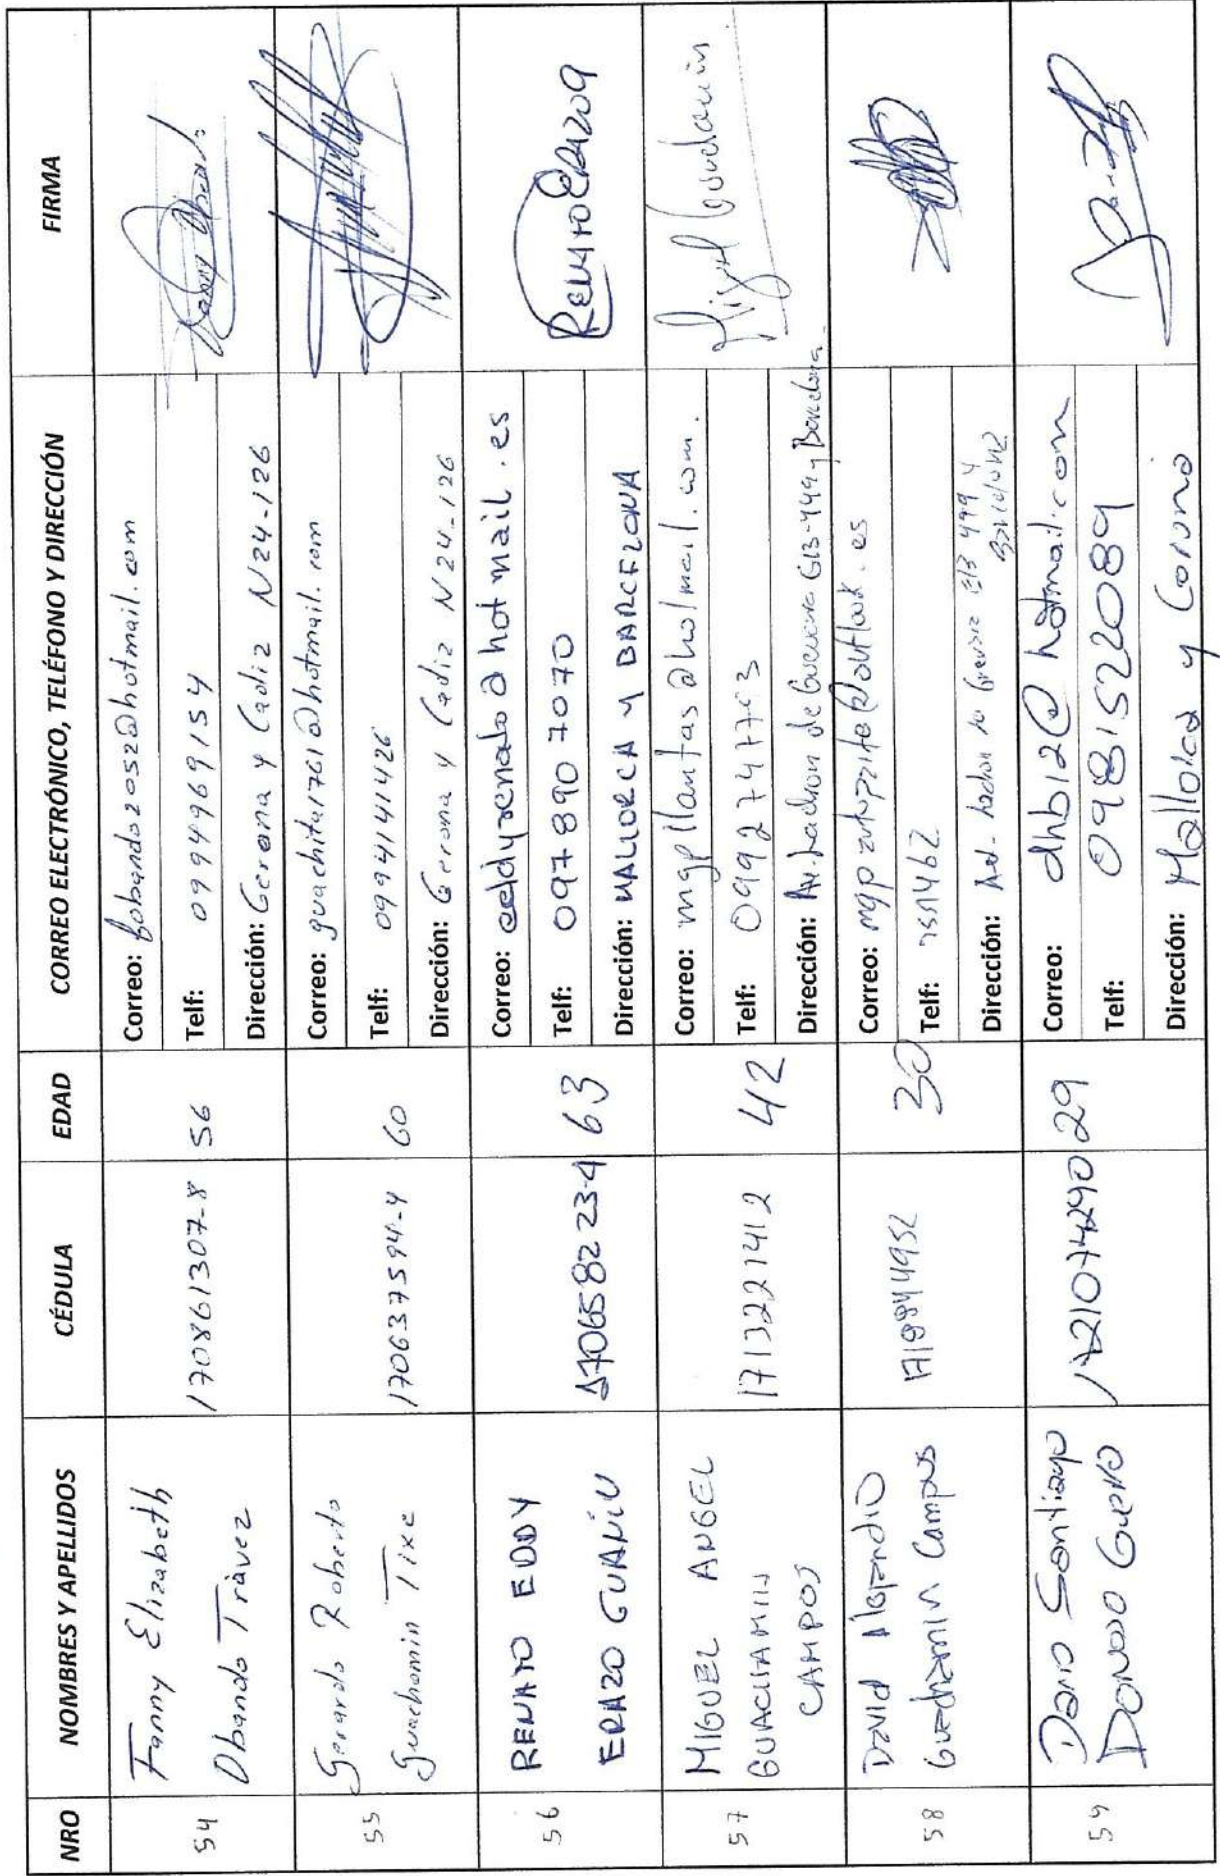 NRO NOMBRES Y APELLIDOS CÉDULA EDAD CORREO ELECTRÓNICO, TELÉFONO Y DIRECCIÓN FIRMA
54 Fanny Elizabeth
Obando Tràvez
170861307-8 56
Correo: fobando2052@hotmail.com
Telf: 0994969154
Dirección: Gerona y Cadiz N24-126
55 Gerardo Roberto
Guachamin Tixe
170637594-4 60
Correo: guachita1761@hotmail.com
Telf: 0994141426
Dirección: Gerona y Cadiz N24-126
56 RENATO EDDY
ERAZO GUAÑU
170658223-4 63
Correo: eddyrenato@hotmail.es
Telf: 097 890 7070
Dirección: MALLORCA y BARCELONA
RENATO ERAZO
57 MIGUEL ANGEL
GUACHAMIN
CAMPOS
1713221412 42
Correo: mgpllantas@hotmail.com.
Telf: 0992741773
Dirección: Av. Ladron de Guevara G13-449 y Barcelona.
Miguel Guachamin
58 David Alejandro
Guachamin Campos
1719944952 30
Correo: mgpautoparte@outlook.es
Telf: 2551462
Dirección: Av. Ladron de Guevara E13 499 y
Barcelona
59 Dario Santiago
Donoso Guerra
1721074290 29
Correo: dhb12@hotmail.com
Telf: 0981522089
Dirección: Mallolca y Coruna